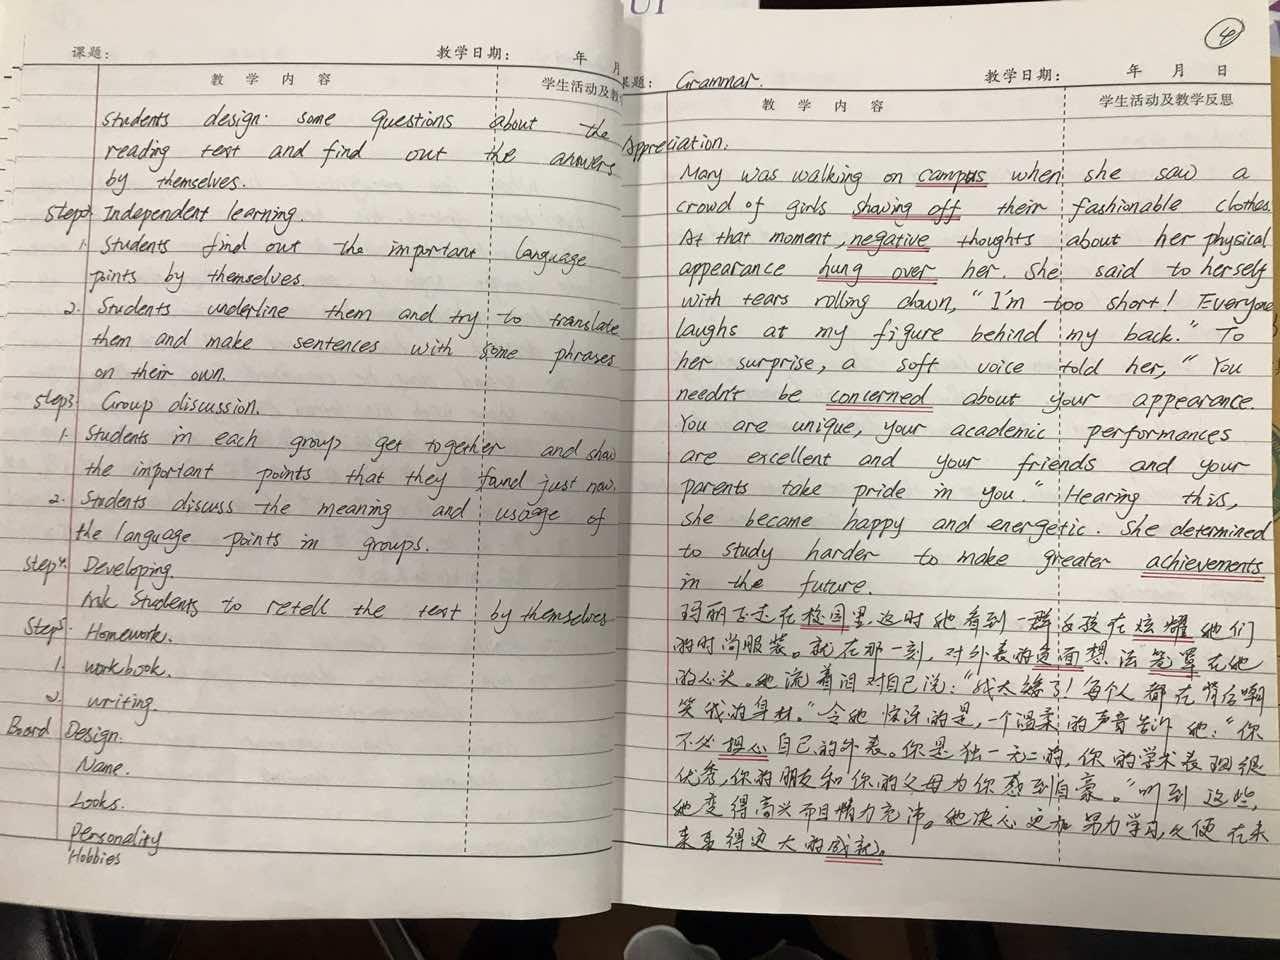 课题: 教学日期: 年 月
教 学 内 容 学生活动及教
Students design some questions about the
reading text and find out the answers
by themselves.
Step2 Independent learning.
1. Students find out the important language
points by themselves.
2. Students underline them and try to translate
them and make sentences with some phrases
on their own.
Step3 Group discussion.
1. Students in each group get together and show
the important points that they found just now.
2. Students discuss the meaning and usage of
the language points in groups.
Step4. Developing.
Ask Students to retell the text by themselves
Step5. Homework.
1. workbook.
2. writing.
Board Design.
Name.
Looks.
Personality
Hobbies
U1
4
课题: Grammar. 教学日期: 年 月 日
教 学 内 容 学生活动及教学反思
Appreciation.
Mary was walking on campus when she saw a
crowd of girls showing off their fashionable clothes.
At that moment, negative thoughts about her physical
appearance hung over her. She said to herself
with tears rolling down, "I'm too short! Everyone
laughs at my figure behind my back." To
her surprise, a soft voice told her, "You
needn't be concerned about your appearance.
You are unique, your academic performances
are excellent and your friends and your
parents take pride in you." Hearing this,
she became happy and energetic. She determined
to study harder to make greater achievements
in the future.
玛丽正走在校园里,这时她看到一群女孩在炫耀她们
的时尚服装。就在那一刻,对外表的负面想法笼罩在她
的心头。她流着泪对自己说:"我太矮了!每个人都在背后嘲
笑我的身材。"令她惊讶的是,一个温柔的声音告诉她:"你
不必担心自己的外表。你是独一无二的,你的学术表现很
优秀,你的朋友和你的父母为你感到自豪。"听到这些,
她变得高兴而且精力充沛。她决心更加努力学习,以便在未
来取得更大的成就。